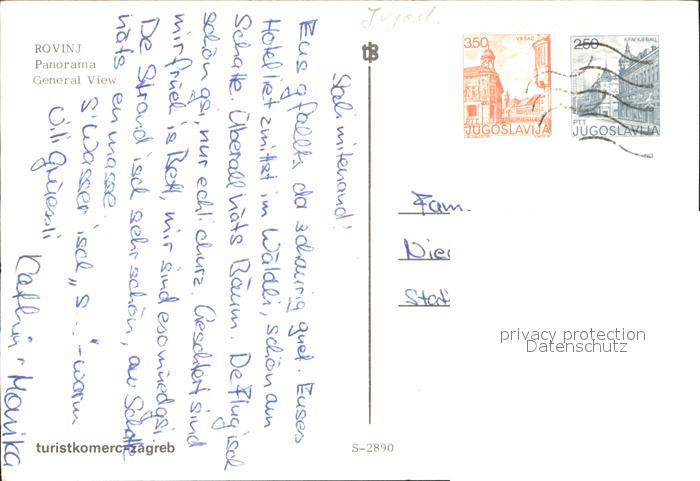 Jugosl.
ROVINJ
Panorama
General View
Sali mitenand!
Eus gfallts da schaurig guet. Euses
Hotel liet zmitzt im Wäldli, schön am
Schatte. Überall häts Bäum. De Flug isch
schön gsi, nur echli churz. Geschtert sind
mir früeh is Bett, mir sind eso müed gsi.
De Strand isch sehr schön, au Schatte
häts en masse.
S'Wasser isch „s..."-warm
Vili grüessli
Kathrin + Monika
tB
350
VRŠAC
PTT
JUGOSLAVIJA
250
PTT
JUGOSLAVIJA
Fam.
Nie
Stat
privacy protection
Datenschutz
turistkomerc-zagreb
S-2890